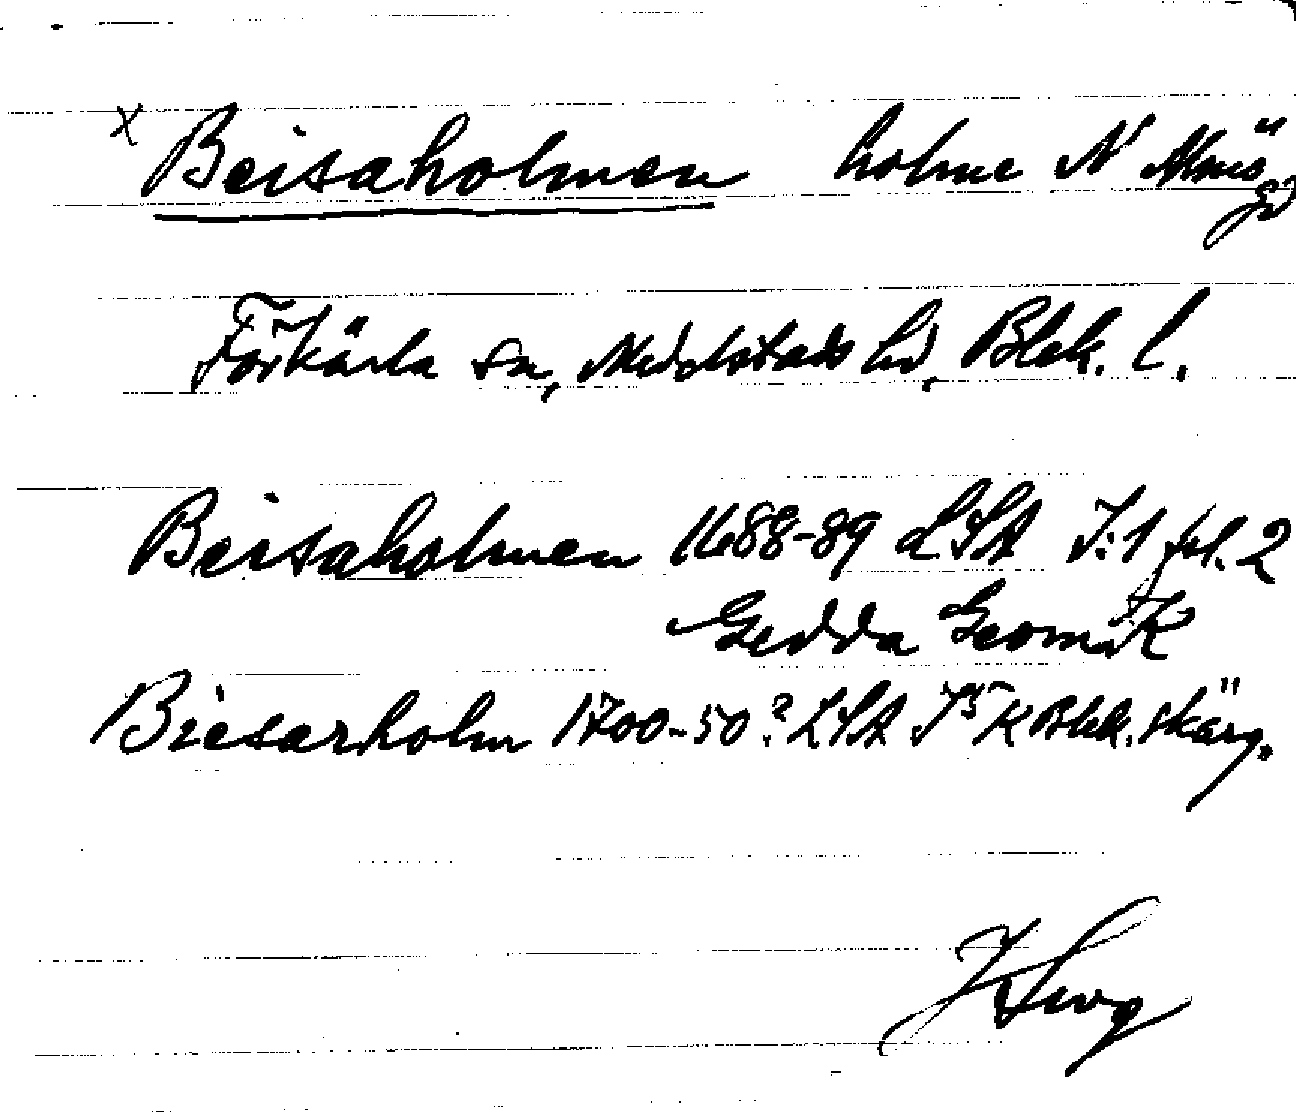 x Beisaholmen holme N Almö
gd
Förkärla sn, Medelstads hd, Blek. l.
Beisaholmen 1688-89 LSA I:1 fol. 2
Gedda Geom. K
Biesarholm 1700-50? LSA I5 K Blek. skärg.